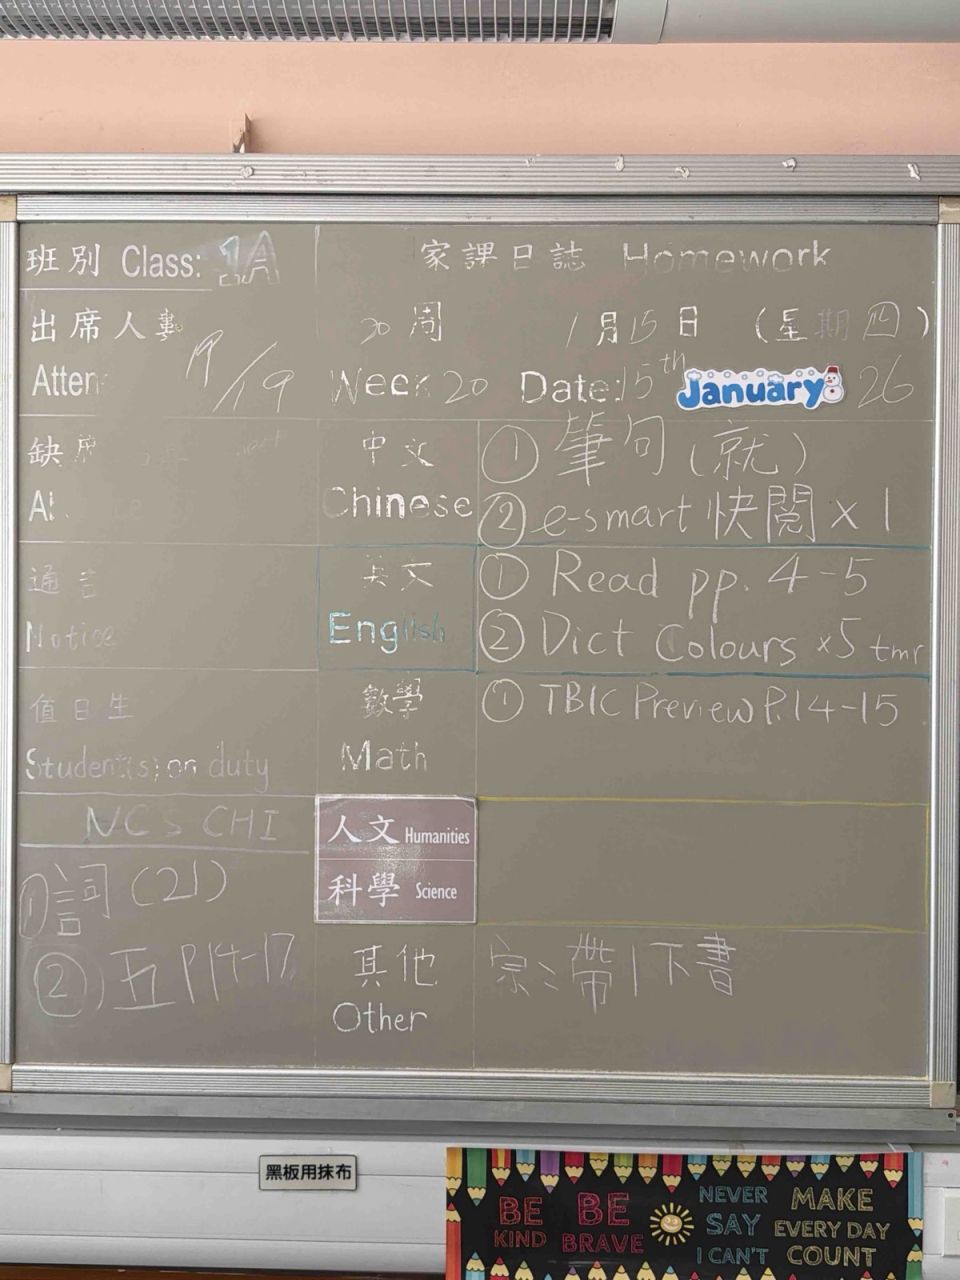 班別 Class: 1A
家課日誌 Homework
出席人數
Atten
19/19
20 周
Week 20
1月15日 (星期四)
Date: 15th January 26
缺席
中文
Chinese
① 筆句(就)
② e-smart 快閱 x 1
通告
Notice
英文
English
① Read pp. 4-5
② Dict Colours x5 tmr
值日生
Student(s) on duty
數學
Math
① TB1C Preview P.14-15
NCS CHI
①詞(21)
② 五 P14-17
人文 Humanities
科學 Science
其他
Other
宗: 帶1下書
黑板用抹布
BE KIND
BE BRAVE
NEVER SAY I CAN'T
MAKE EVERY DAY COUNT